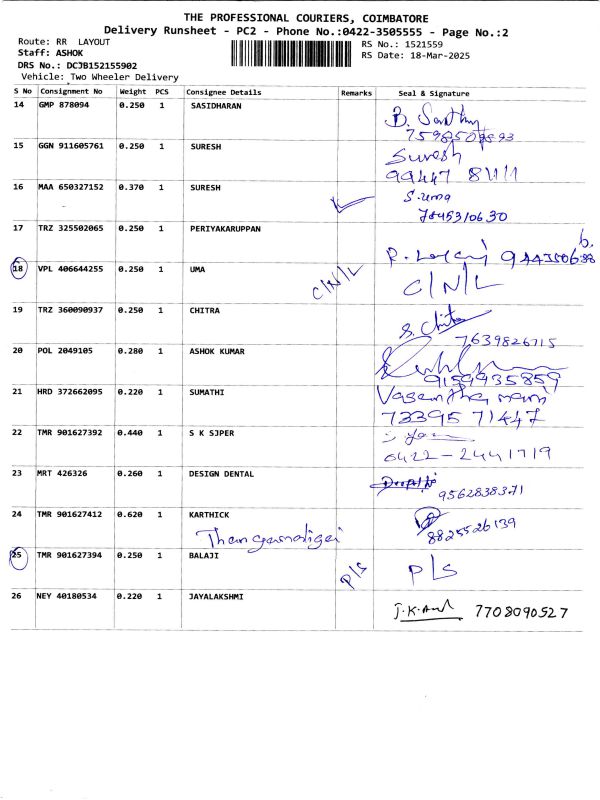 THE PROFESSIONAL COURIERS, COIMBATORE
Delivery Runsheet - PC2 - Phone No.:0422-3505555 - Page No.:2
Route: RR LAYOUT
RS No.: 1521559
Staff: ASHOK
RS Date: 18-Mar-2025
DRS No.: DCJB152155902
Vehicle: Two Wheeler Delivery
S No Consignment No Weight PCS Consignee Details Remarks Seal & Signature
14 GMP 878094 0.250 1 SASIDHARAN
B.
15 GGN 911605761 0.250 1 SURESH
Suresh
99447 81111
16 MAA 650327152 0.370 1 SURESH
S.uma
17 TRZ 325502065 0.250 1 PERIYAKARUPPAN
18 VPL 406644255 0.250 1 UMA C/N/L C/N/L
19 TRZ 360090937 0.250 1 CHITRA
S. Chitra
7639826715
20 POL 2049105 0.280 1 ASHOK KUMAR
9159935859
21 HRD 372662095 0.220 1 SUMATHI
73395 71447
22 TMR 901627392 0.440 1 S K SJPER
0422-2441719
23 MRT 426326 0.260 1 DESIGN DENTAL
9562838371
24 TMR 901627412 0.620 1 KARTHICK
8825526139
Thangamaligai
25 TMR 901627394 0.250 1 BALAJI P/S P/S
26 NEY 40180534 0.220 1 JAYALAKSHMI
7708090527